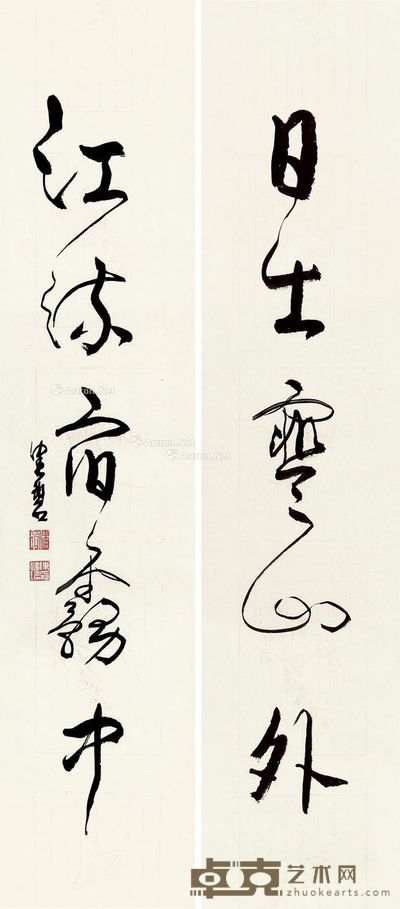 日出寒山外
江流宿雾中
Artron.Net
Artron.Net
Artron.Net
Artron.Net
卓克艺术网
zhuokearts.com